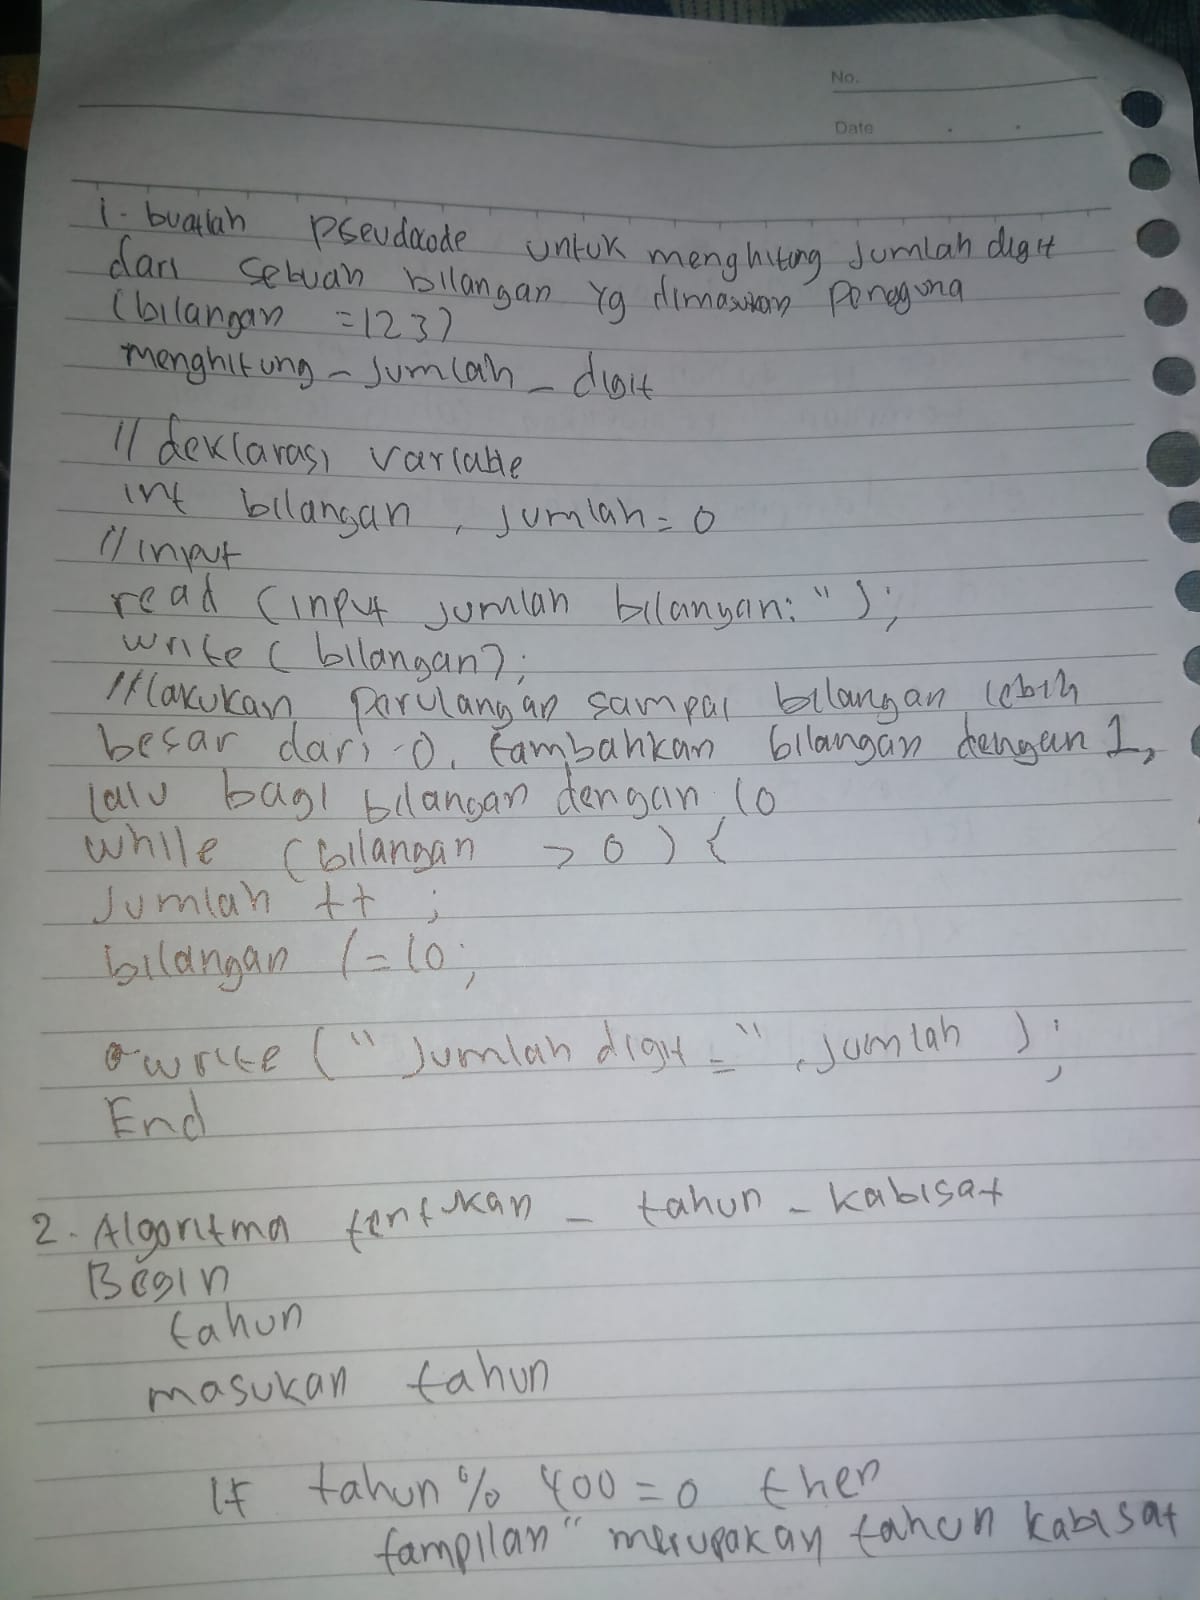 No.
Date
1. buatlah pseudocode untuk menghitung jumlah digit
dari sebuah bilangan yg dimasukan pengguna
(bilangan =123)
menghitung - jumlah - digit
// deklarasi variable
int bilangan, jumlah = 0
// input
read (input jumlah bilangan: " );
write ( bilangan);
// lakukan perulangan sampai bilangan lebih
besar dari 0. tambahkan bilangan dengan 1,
lalu bagi bilangan dengan 10
while (bilangan > 0 ) {
Jumlah ++ ;
bilangan /= 10;
write ( " Jumlah digit = " , jumlah ) ;
End
2. Algoritma tentukan - tahun - kabisat
Begin
tahun
masukan tahun
If tahun % 400 = 0 then
tampilan " merupakan tahun kabisat